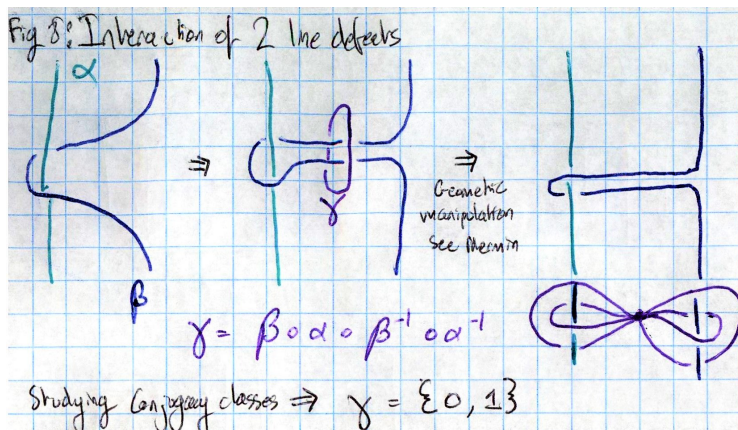 Fig 8: Interaction of 2 line defects
α
⇒
γ
⇒
Geometric
manipulation
see Mermin
β
γ = β ∘ α ∘ β⁻¹ ∘ α⁻¹
Studying Conjugacy classes ⇒ γ = {0, 1}